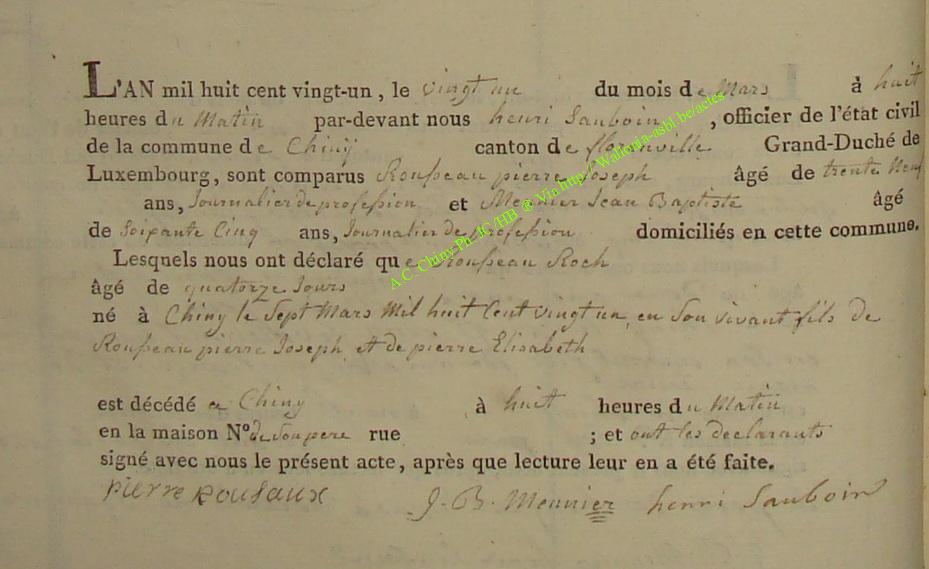 L'AN mil huit cent vingt-un, le vingt un du mois de Mars à huit
heures du Matin par-devant nous henri Sauboin, officier de l'état civil
de la commune de Chiny canton de florenville Grand-Duché de
Luxembourg, sont comparus Rousseau pierre Joseph âgé de trente Neuf
ans, Journalier de profession et Meunier Jean Baptiste âgé
de Soixante Cinq ans, Journalier de profession domiciliés en cette commune.
Lesquels nous ont déclaré que Rousseau Roch
âgé de quatorze Jours
né à Chiny le Sept Mars Mil huit Cent vingt un, en Son vivant fils de
Rousseau pierre Joseph, et de pierre Elisabeth
est décédé a Chiny à huit heures du Matin
en la maison N° de Son pere rue ; et ont les declarants
signé avec nous le présent acte, après que lecture leur en a été faite.
pierre Rousaux J. B. Meunier henri Sauboin
A.C. Chiny Ph. JC/HB @ Via http://Wallonia-asbl.be/actes